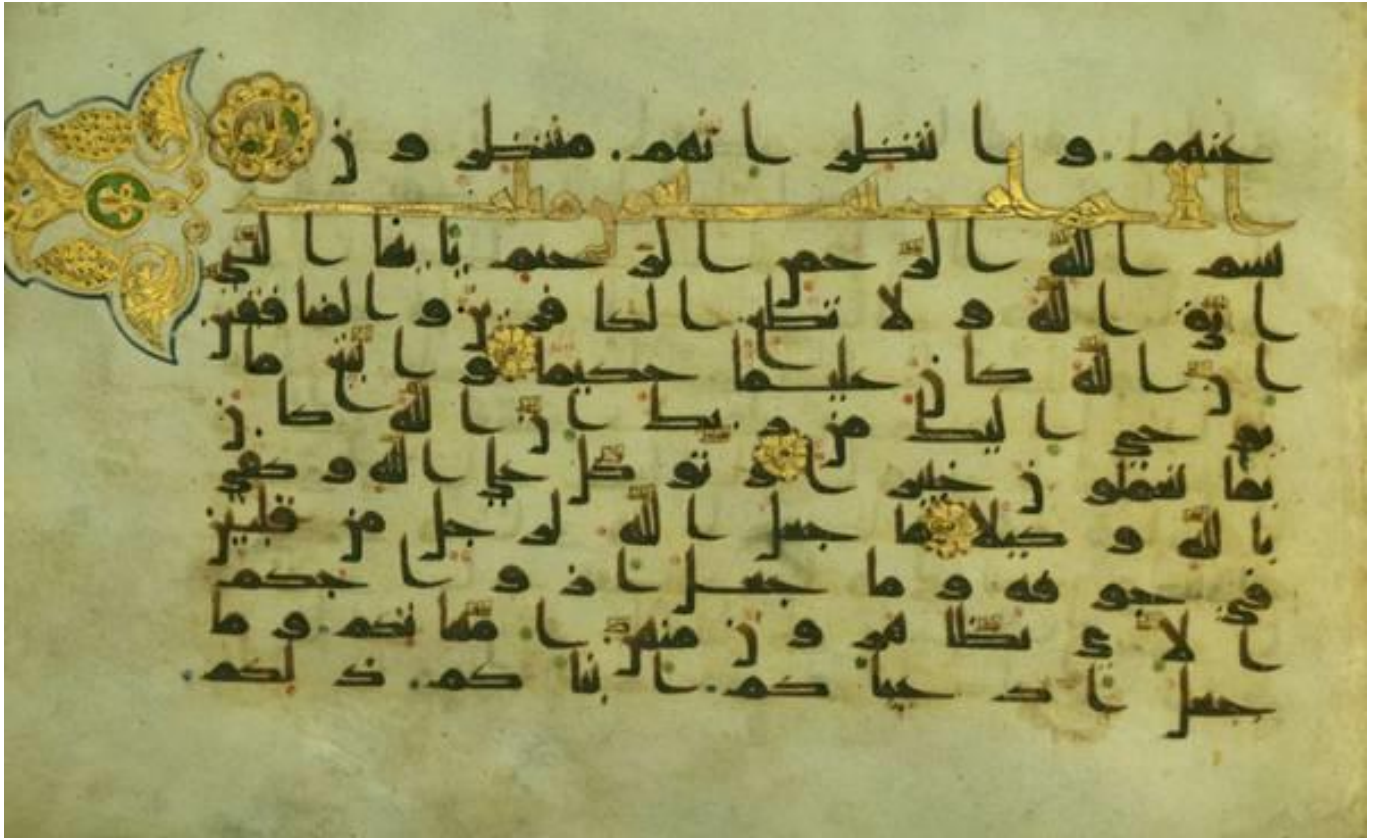 عنهم وانتظر انهم منتظرون
بسم الله الرحمن الرحيم يايها النبي
اتق الله ولا تطع الكافرين والمنافقين
ان الله كان عليما حكيما واتبع ما
يوحى اليك من ربك ان الله كان
بما تعملون خبيرا وتوكل على الله وكفى
بالله وكيلا ما جعل الله لرجل من قلبين
في جوفه وما جعل ازواجكم
الاي تظاهرون منهن امهاتكم وما
جعل ادعياكم ابناكم ذلكم